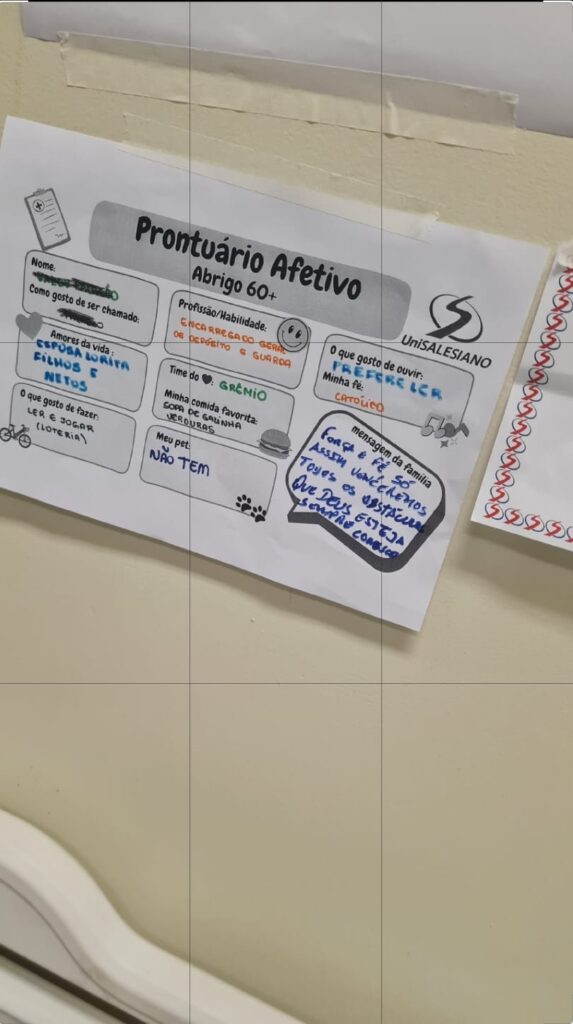 Prontuário Afetivo
Abrigo 60+
UniSALESIANO
Nome:
Como gosto de ser chamado:
Amores da vida:
ESPOSA LORITA
FILHOS E
NETOS
O que gosto de fazer:
LER E JOGAR
(LOTERIA)
Profissão/Habilidade:
ENCARREGADO GERAL
DE DEPÓSITO E GUARDA
Time do ♥: GRÊMIO
Minha comida favorita:
SOPA DE GALINHA
VERDURAS
Meu pet:
NÃO TEM
O que gosto de ouvir:
PREFERE LER
Minha fé:
CATÓLICO
mensagem da família
FORÇA E FÉ, SÓ
ASSIM VENCEREMOS
TODOS OS OBSTÁCULOS
QUE DEUS ESTEJA
SEMPRE CONOSCO